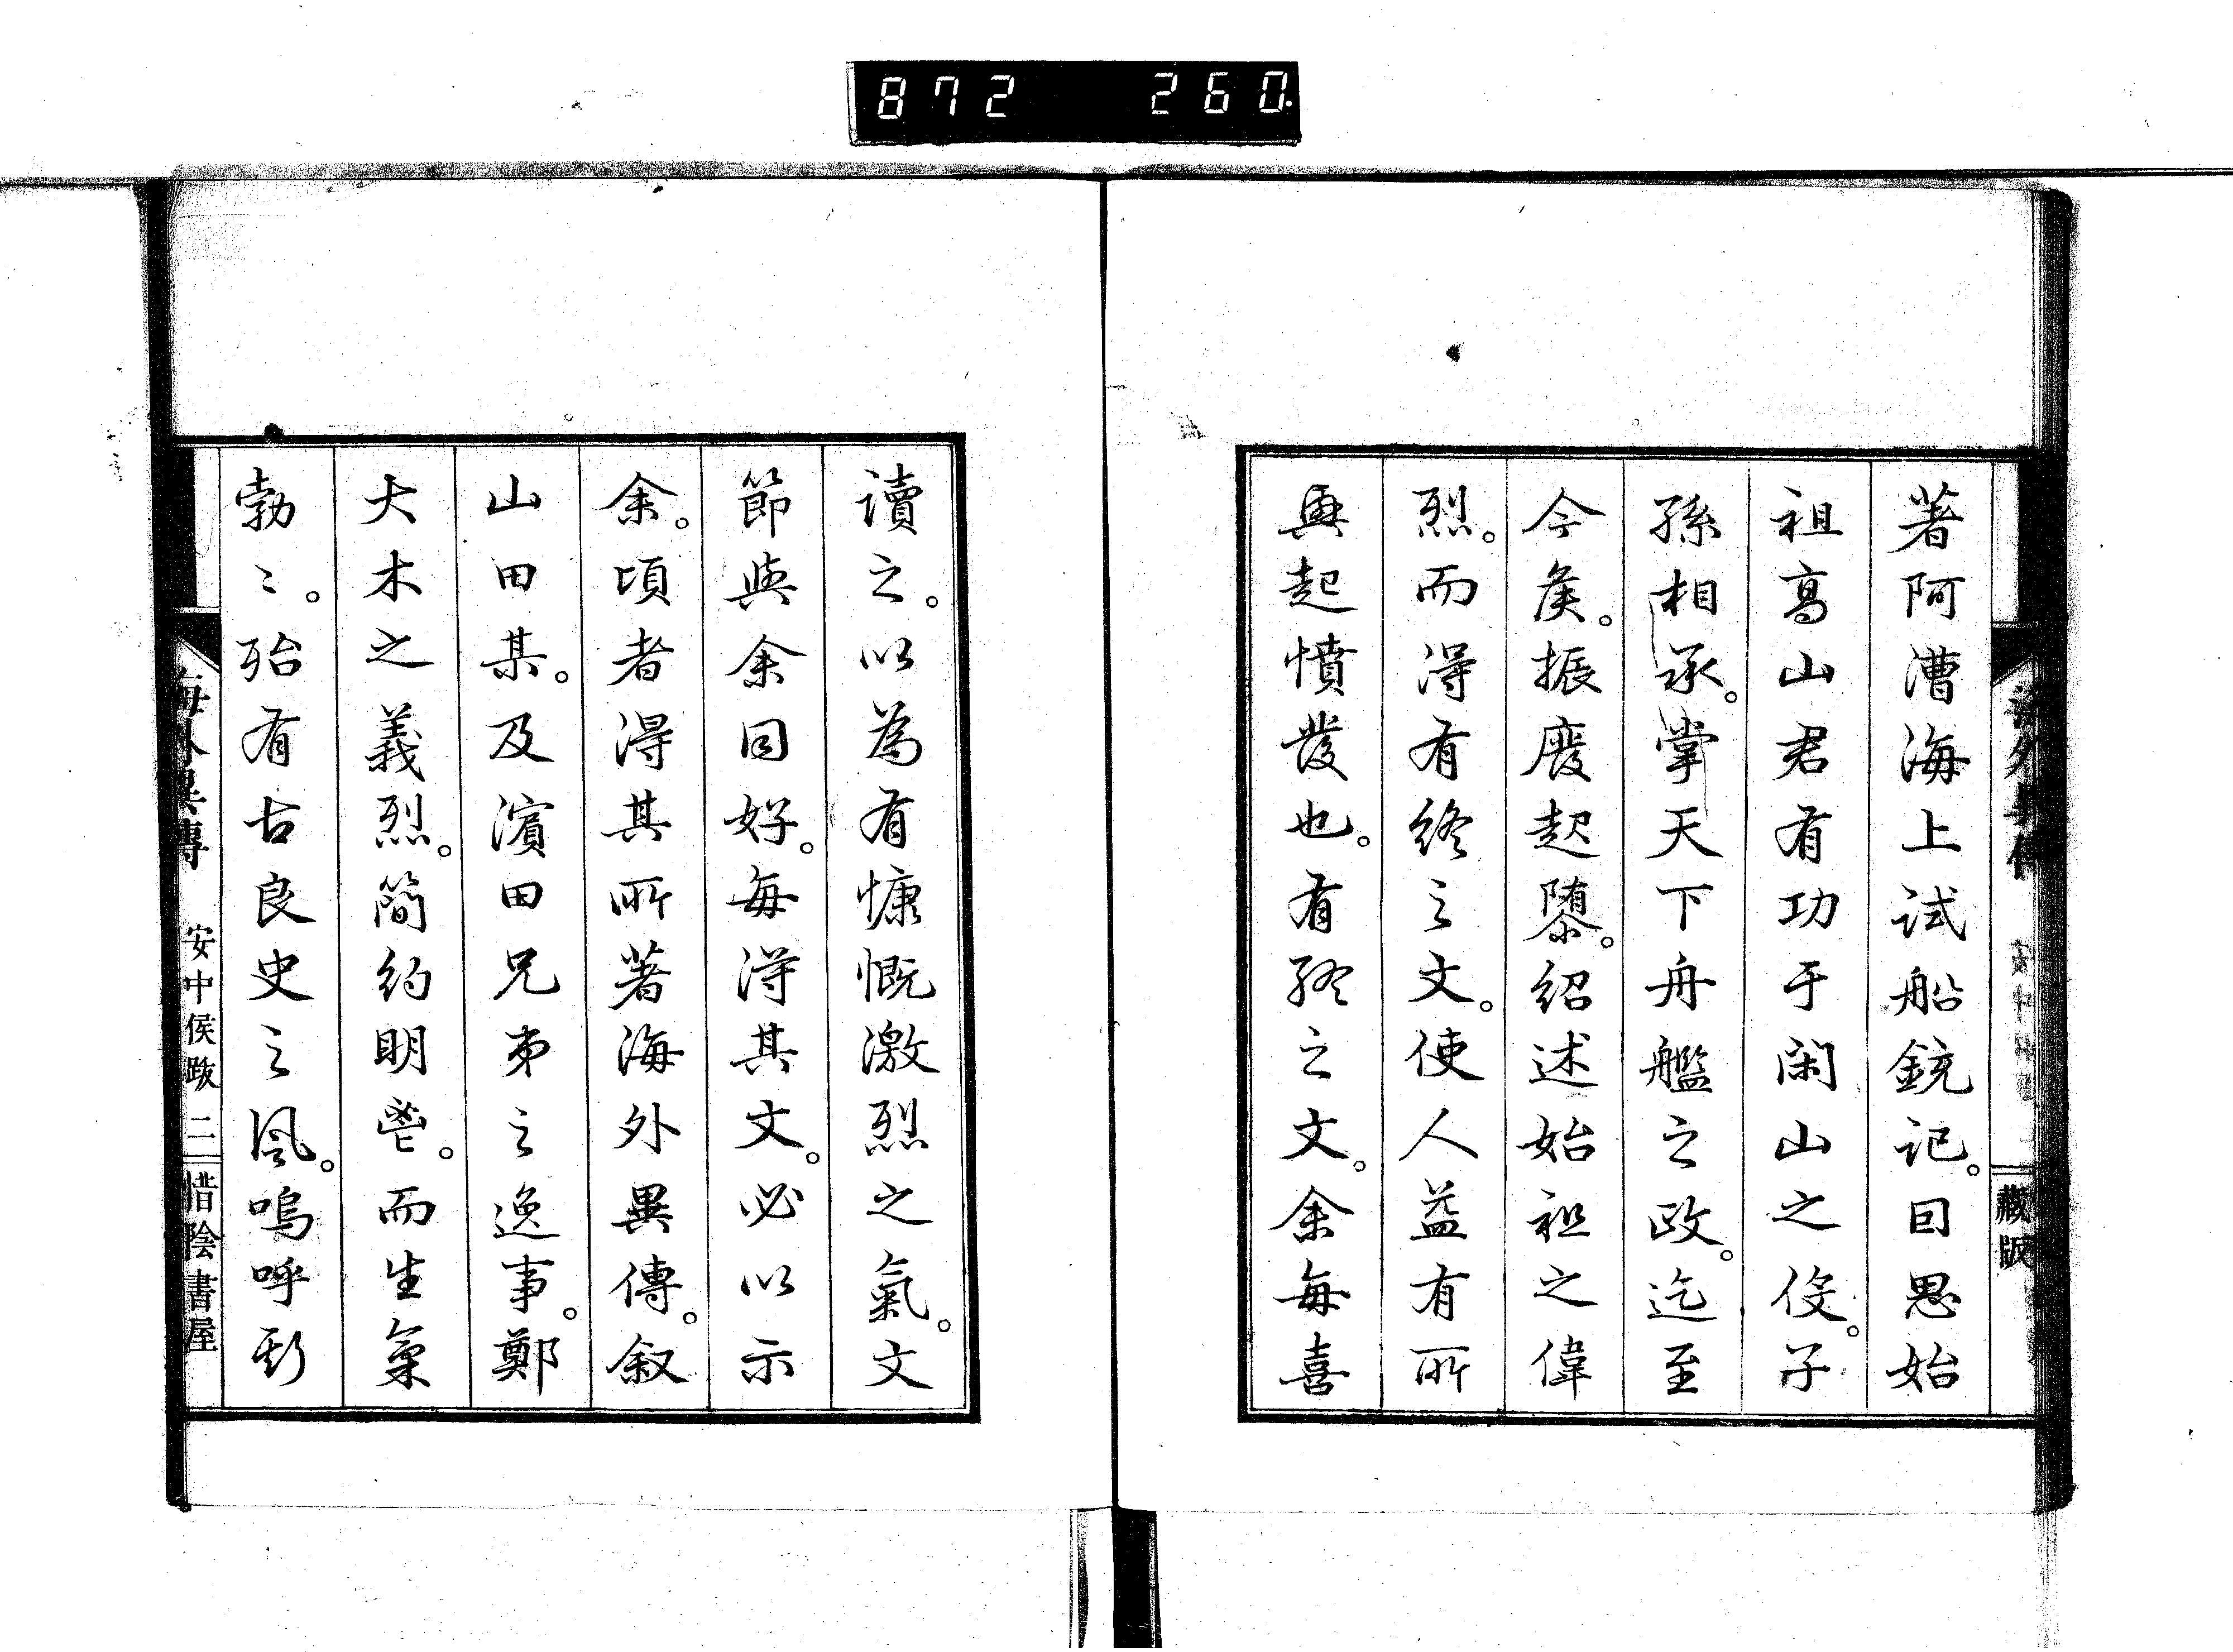 872 260
著阿漕海上試船銃記。因思始
祖高山君有功于閑山之役。子
孫相承。掌天下舟艦之政。迄至
今矦。振廢起隳。紹述始祖之偉
烈。而得有終之文。使人益有所
興起憤發也。有終之文。余每喜
藏版
讀之。以為有慷慨激烈之氣。文
節與余同好。每得其文。必以示
余。頃者得其所著海外異傳。叙
山田某。及濱田兄弟之逸事。鄭
大木之義烈。簡約明鬯。而生氣
勃〻。殆有古良史之風。嗚呼斯
海外異傳 安中侯跋 二 惜陰書屋